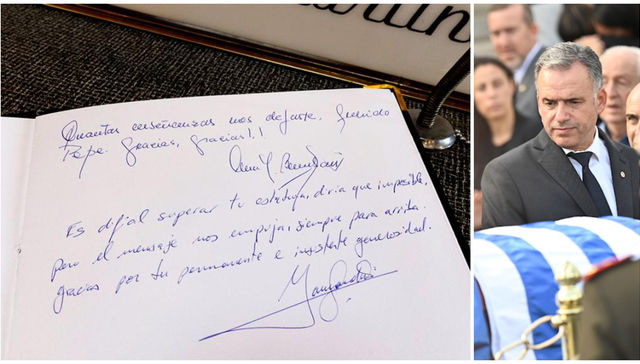 Cuantas enseñanzas nos dejaste, Querido
Pepe. Gracias, Gracias!!
Es dificil superar tu estatura, diria que imposible,
pero el mensaje nos empuja, siempre para arriba.
gracias por tu permanente e insistente generosidad.